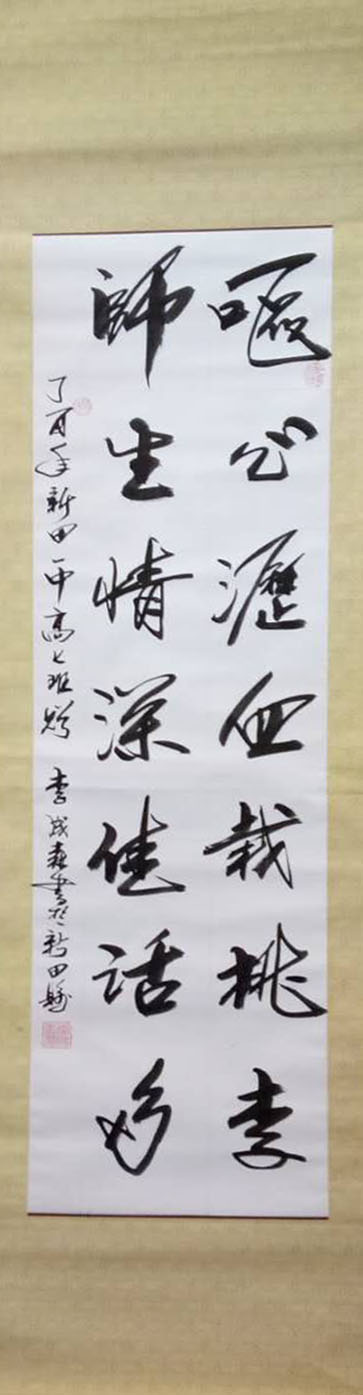 嘔心瀝血栽桃李
師生情深佳話
丁酉年新田一中高七班 李成森書於新田縣